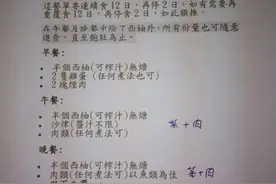 這餐單要連續食12日，再停2日。如有需要再
重覆食12日，再停食2日，如此類推。
在午餐及晚餐中除了西柚外，所有份量也可隨意
進食，直至飽肚為止。
早餐:
半個西柚(可榨汁)無糖
2隻雞蛋 (任何煮法也可)
2塊煙肉
午餐:
半個西柚(可榨汁)無糖
沙律(醬汁不限)
肉類(任何煮法可)
菜+肉
晚餐:
半個西柚(可榨汁)無糖
肉類(任何煮法可)以魚類為佳
菜+肉